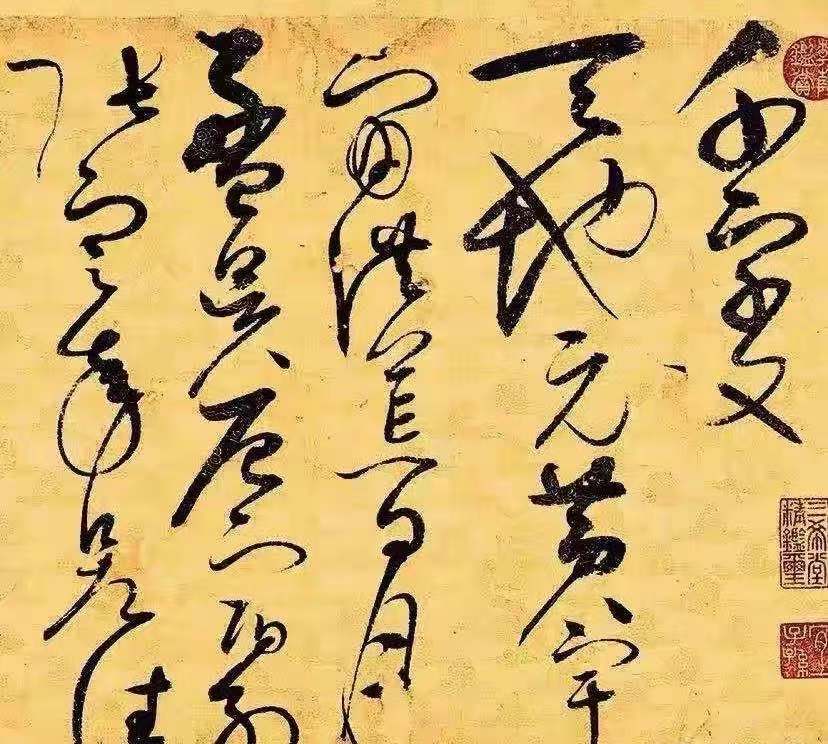 千字文
天地元黃宇
宙洪荒日月
盈昃辰宿列
張寒來暑往
三希堂精鑑璽
宜子孫